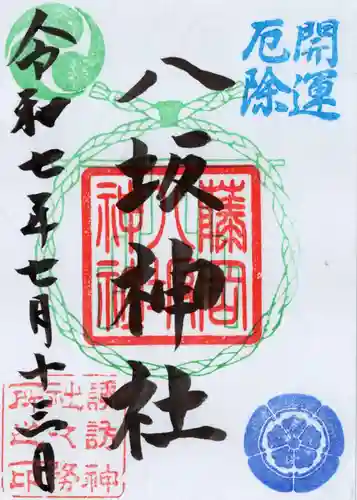 開運
厄除
八坂神社
藤岡
八坂
神社
令和七年七月十三日
諏訪神
社々務
所之印